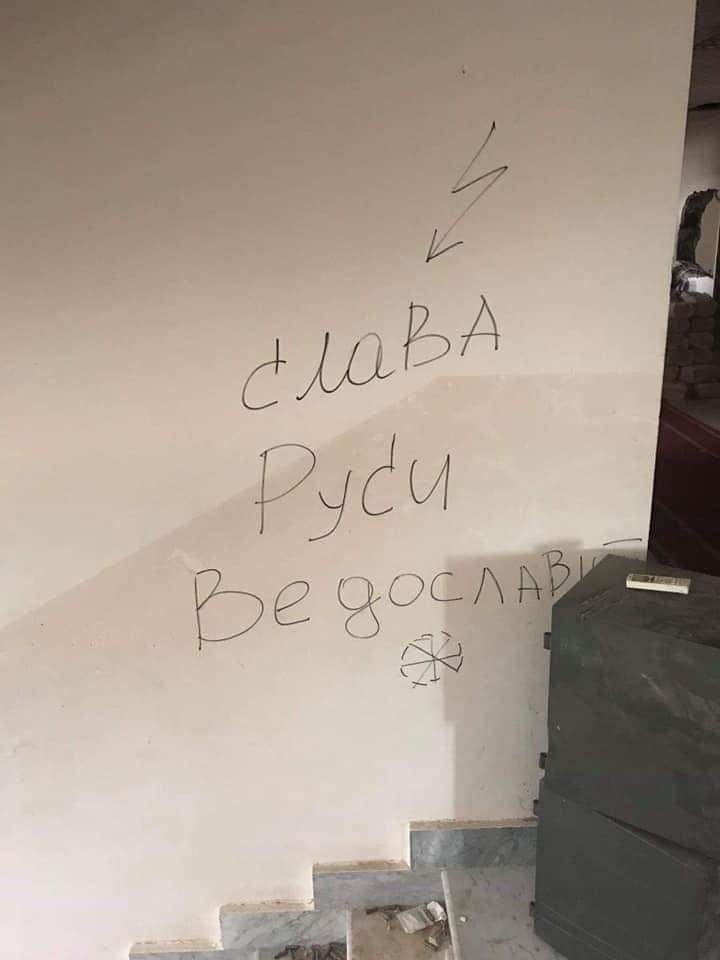 СлаВА
Руси
Ведослав